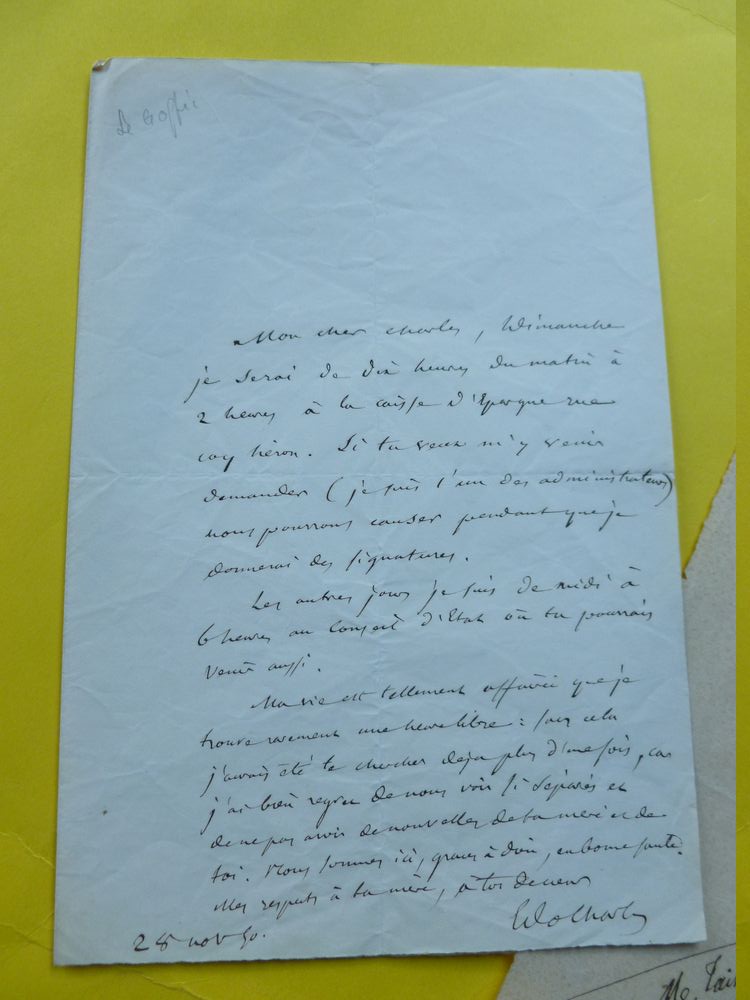 Le Goffic
Mon cher Charles, Dimanche
je serai de dix heures du matin à
2 heures à la caisse d'Epargne rue
coq héron. Si tu veux m'y venir
demander (je suis l'un des administrateurs)
nous pourrons causer pendant que je
donnerai des signatures.
Les autres jours je suis de midi à
6 heures au Conseil d'Etat où tu pourrais
venir aussi.
Ma vie est tellement affairée que je
trouve rarement une heure libre : sans cela
j'aurais été te chercher deja plus d'une fois, car
j'ai bien regret de nous voir si séparés et
de ne pas avoir de nouvelles de ta mère et de
toi. Nous sommes ici, graces à dieu, en bonne santé.
Mes respects à ta mère, à toi de cœur
Ed Charles
28 nov 50.
Me. Tai